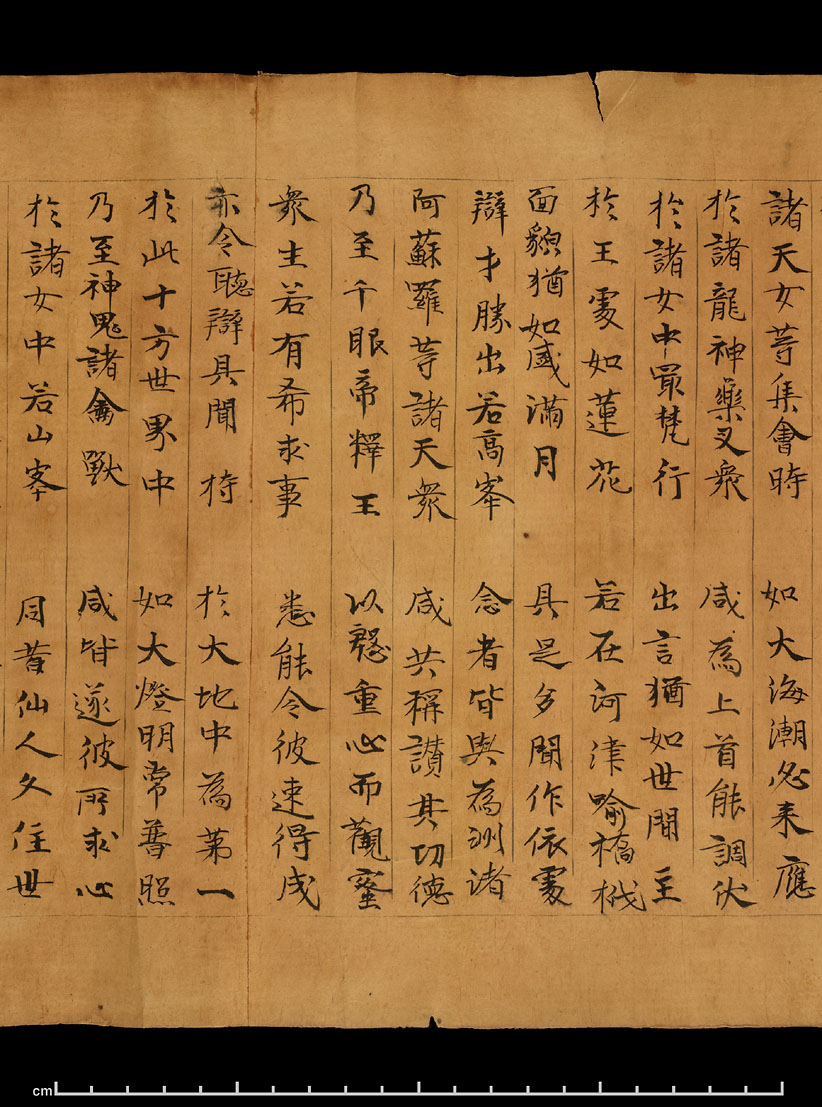 諸天女等集會時 如大海潮必来應
於諸龍神藥叉衆 咸為上首能調伏
於諸女中最梵行 出言猶如世間主
於王處如蓮花 若在河津喻橋栰
面貌猶如盛滿月 具是多聞作依處
辯才勝出若高峯 念者皆與為洲渚
阿蘇羅等諸天衆 咸共稱讃其功德
乃至千眼帝釋王 以慇重心而觀察
衆生若有希求事 悉能令彼速得成
亦令聰辯具聞持 於大地中為第一
於此十方世界中 如大燈明常普照
乃至神鬼諸禽獸 咸皆遂彼所求心
於諸女中若山峯 同昔仙人久住世
cm